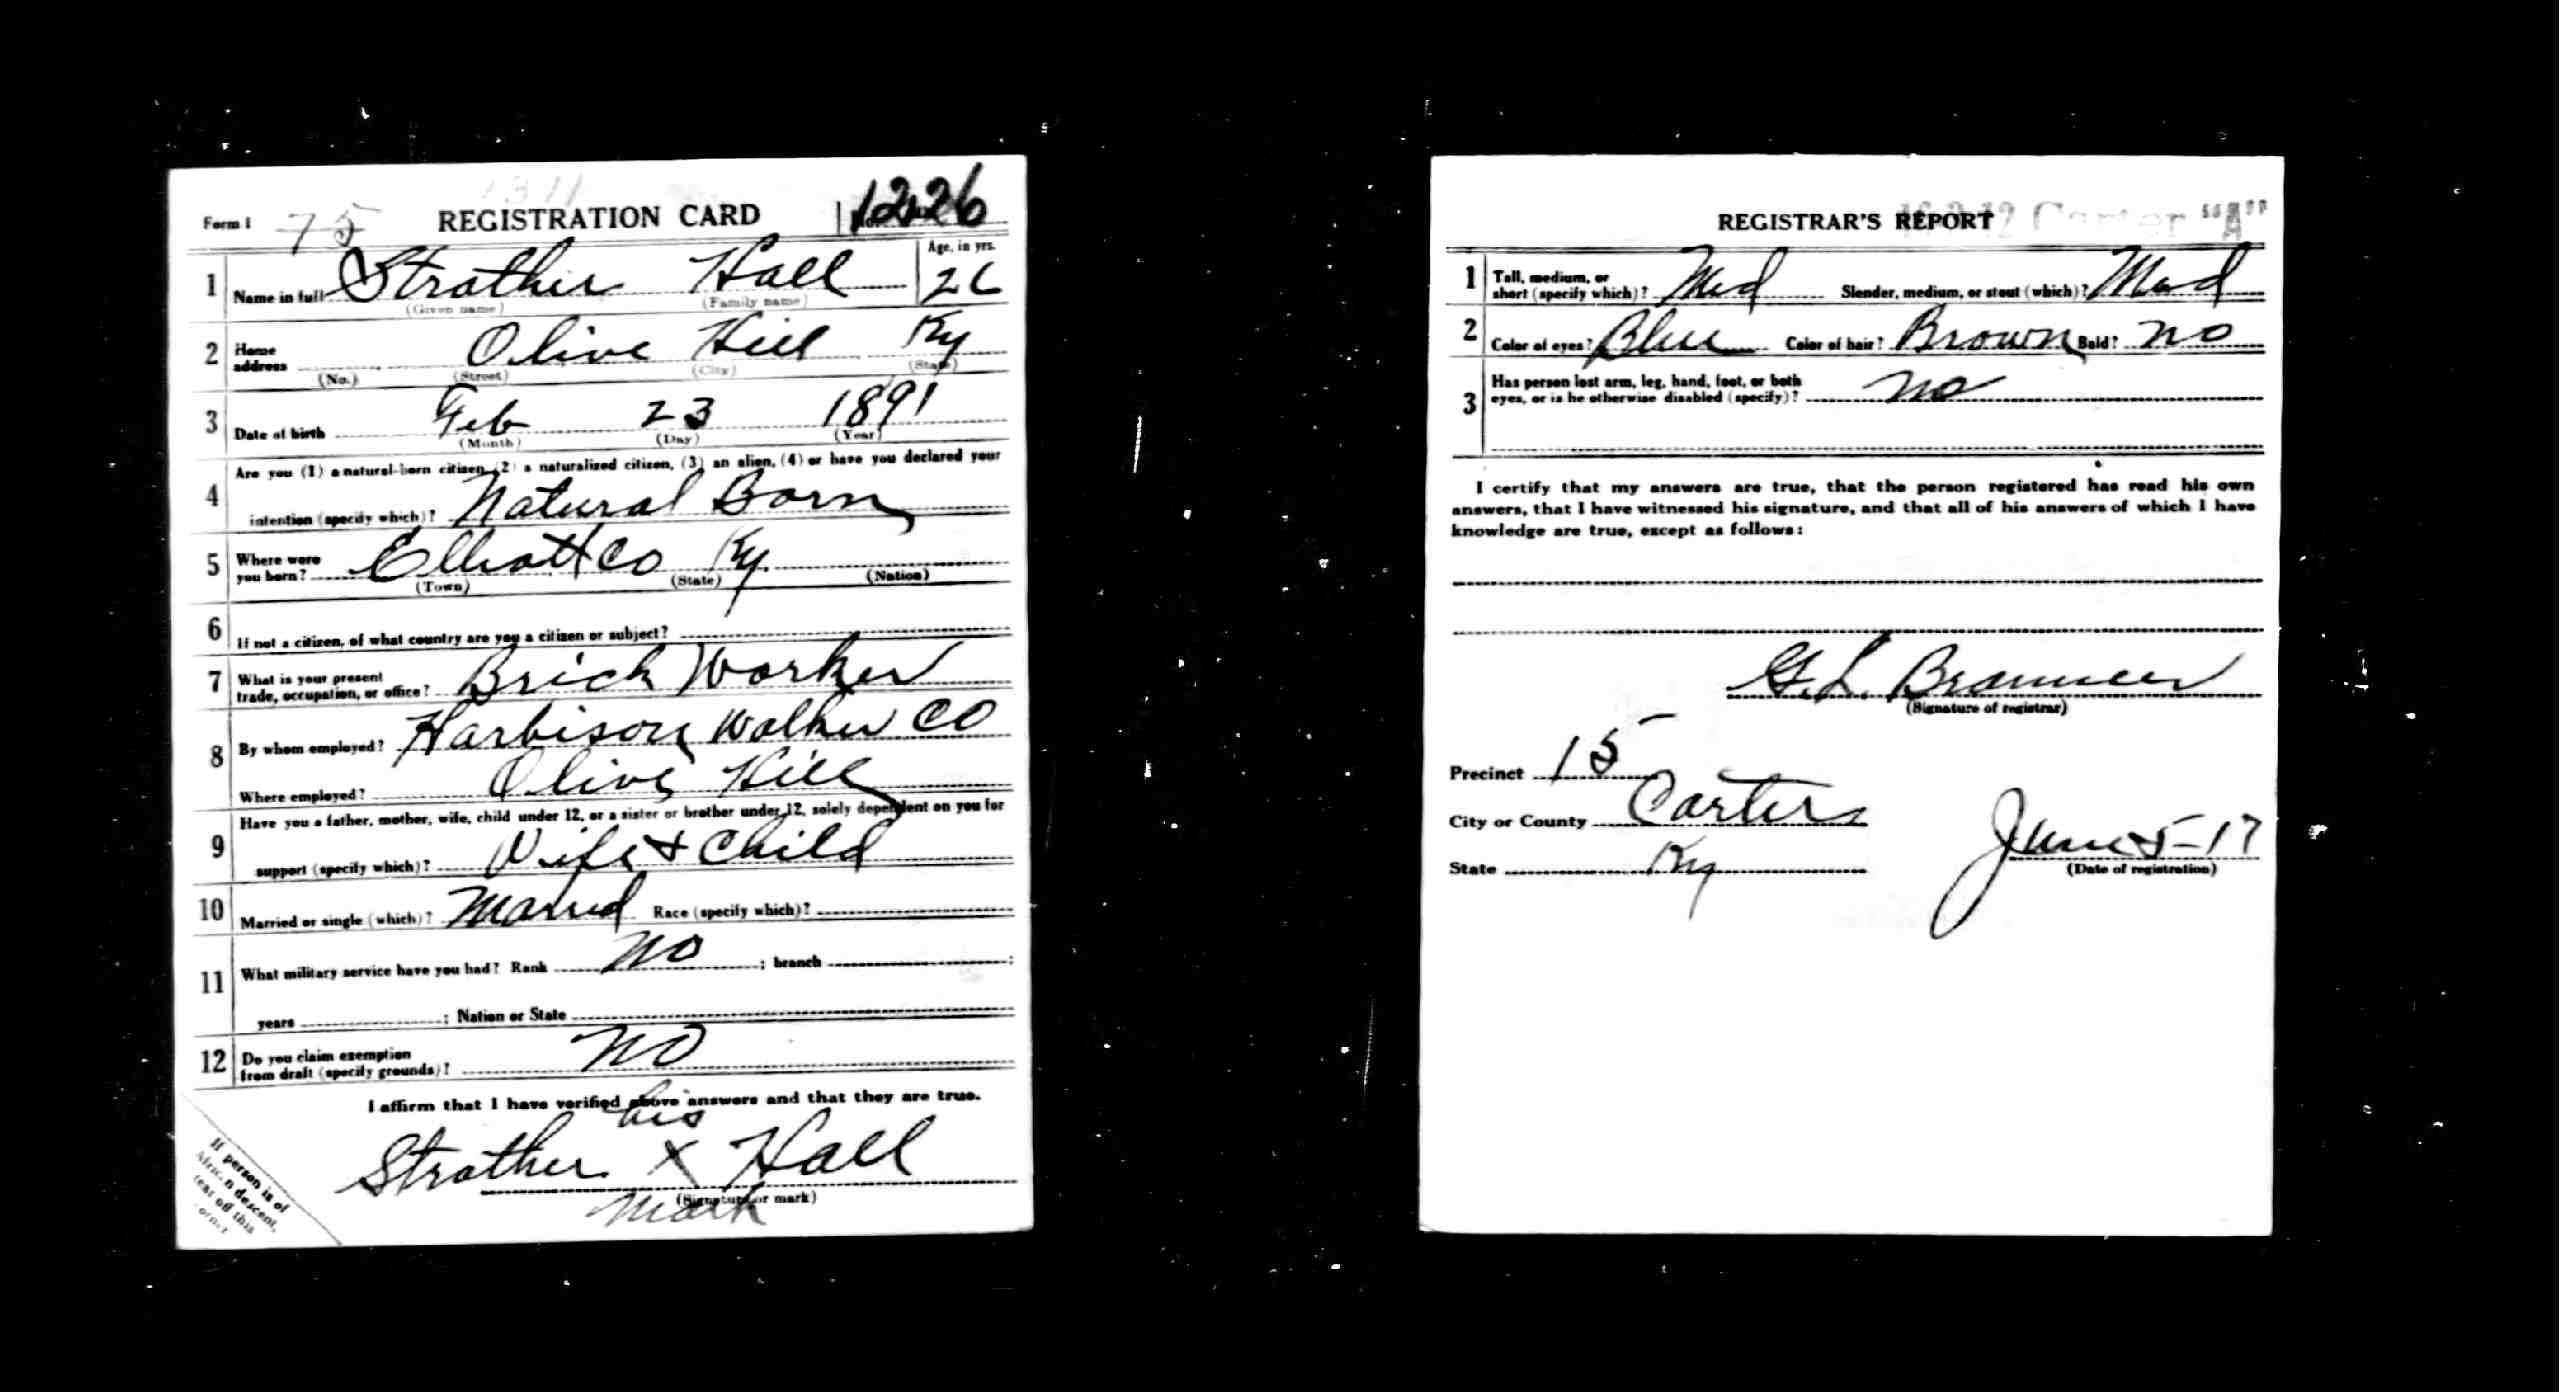 1311
Form 1 75 REGISTRATION CARD No. 1226
1 Name in full Strather Hall Age, in yrs. 26
(Given name) (Family name)
2 Home address Olive Hill Ky
(No.) (Street) (City) (State)
3 Date of birth Feb 23 1891
(Month) (Day) (Year)
4 Are you (1) a natural-born citizen, (2) a naturalized citizen, (3) an alien, (4) or have you declared your
intention (specify which)? Natural Born
5 Where were you born? Elliott Co Ky.
(Town) (State) (Nation)
6 If not a citizen, of what country are you a citizen or subject?
7 What is your present
trade, occupation, or office? Brick Worker
8 By whom employed? Harbison Walker CO
Where employed? Olive Hill
9 Have you a father, mother, wife, child under 12, or a sister or brother under 12, solely dependent on you for
support (specify which)? Wife + Child
10 Married or single (which)? Married Race (specify which)?
11 What military service have you had? Rank no ; branch ;
years ; Nation or State
12 Do you claim exemption
from draft (specify grounds)? NO
I affirm that I have verified above answers and that they are true.
his
Strather X Hall
(Signature or mark)
mark
If person is of
African descent,
tear off this
corner
REGISTRAR'S REPORT Carter "A"
1 Tall, medium, or
short (specify which)? Med Slender, medium, or stout (which)? Med
2 Color of eyes? Blue Color of hair? Brown Bald? no
3 Has person lost arm, leg, hand, foot, or both
eyes, or is he otherwise disabled (specify)? no
I certify that my answers are true, that the person registered has read his own
answers, that I have witnessed his signature, and that all of his answers of which I have
knowledge are true, except as follows:
G. L.
(Signature of registrar)
Precinct 15
City or County Carter
State Ky
June 5-17
(Date of registration)